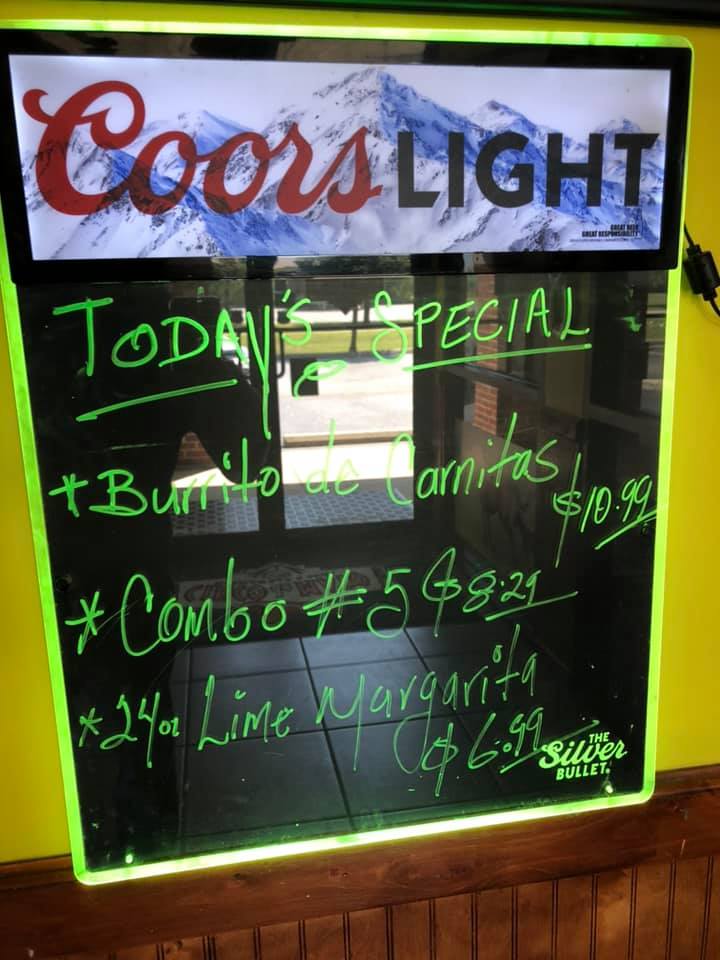 Coors LIGHT
GREAT BEER
GREAT RESPONSIBILITY
TODAY'S SPECIAL
*Burrito de Carnitas
$10.99
*Combo #5 $8.29
*24oz Lime Margarita
$6.99
THE
Silver
BULLET.